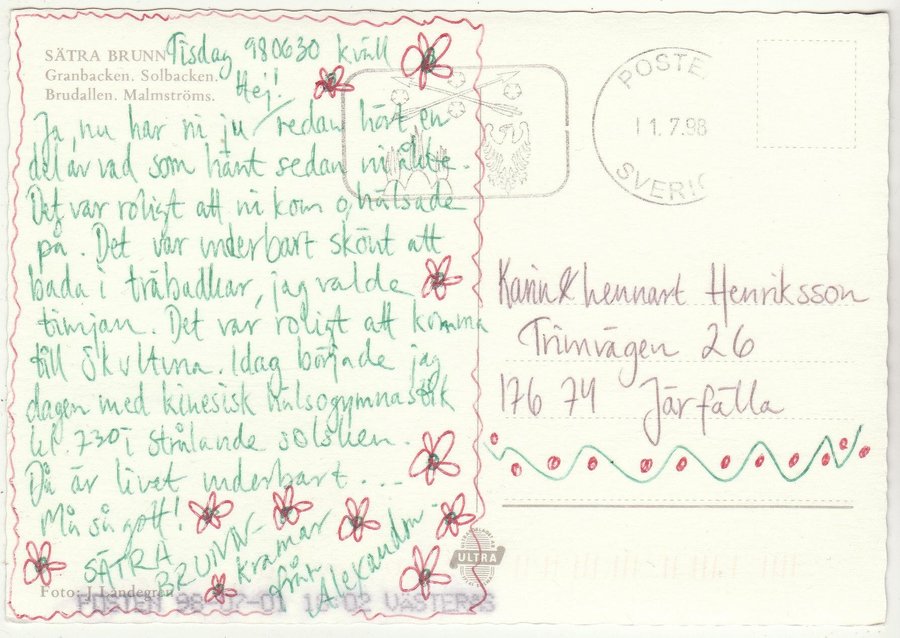 SÄTRA BRUNN
Granbacken. Solbacken.
Brudallen. Malmströms.
Tisdag 980630 kväll
Hej!
Ja, nu har ni ju redan hört en
del av vad som hänt sedan ni åkte.
Det var roligt att ni kom o hälsade
på. Det var underbart skönt att
bada i träbadkar, jag valde
timjan. Det var roligt att komma
till Skultuna. Idag började jag
dagen med kinesisk hälsogymnastik
kl. 730 i strålande solsken.
Då är livet underbart...
Må så gott!
SÄTRA
BRUNN-
kramar
från
Foto: J Landegren
POSTEN
11.7.98
SVERIG
Karin & Lennart Henriksson
Trimvägen 26
176 74 Järfälla
ULTRA
POSTEN 98-07-01 18 02 VÄSTERÅS